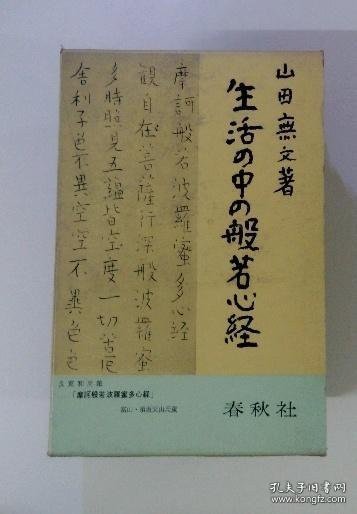 山田無文著
生活の中の般若心経
摩訶般若波羅蜜多心経
観自在菩薩行深般波羅蜜
多時照見五蘊皆空度一切苦厄
舎利子色不異空空不異色色
良寛和尚筆
「摩訶般若波羅蜜多心経」
春秋社
孔夫子旧书网